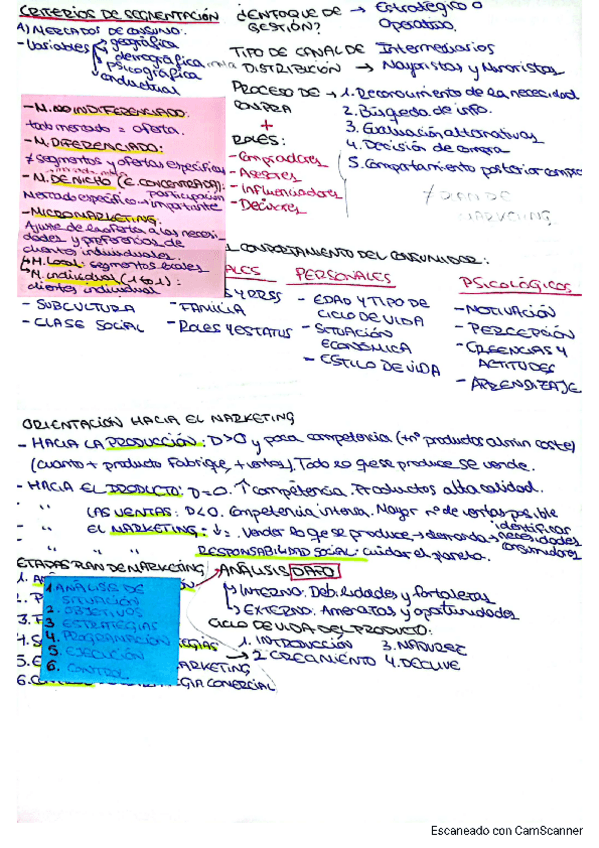 CRITERIOS DE SEGMENTACIÓN
A) MERCADOS DE CONSUMO:
- Variables
geográfica
demográfica
psicográfica
conductual
¿ENFOQUE DE GESTIÓN? → Estratégico o Operativo.
TIPO DE CANAL DE DISTRIBUCIÓN → Intermediarios
Mayoristas y Minoristas
PROCESO DE COMPRA → 1. Reconocimiento de la necesidad
2. Búsqueda de info.
3. Evaluación alternativas
4. Decisión de compra
5. Comportamiento posterior compra
+
ROLES:
- Compradores
- Asesores
- Influenciadores
- Decisores
7 PLAN DE MARKETING
- M. NO INDIFERENCIADO:
todo mercado = oferta.
- M. DIFERENCIADO:
≠ segmentos y ofertas específicas
- M. DE NICHO (E. CONCENTRADA):
Mercado específico → participación importante
- MICROMARKETING:
Ajuste de la oferta a las necesi-
dades y preferencias de
clientes individuales.
↳ M. Local: segmentos locales
↳ M. individual (1 to 1):
clientes individual
COMPORTAMIENTO DEL CONSUMIDOR:
ALES
PERSONALES
PSICOLÓGICOS
- SUBCULTURA
- CLASE SOCIAL
- FAMILIA
- ROLES Y ESTATUS
- EDAD Y TIPO DE
CICLO DE VIDA
- SITUACIÓN
ECONÓMICA
- ESTILO DE VIDA
- MOTIVACIÓN
- PERCEPCIÓN
- CREENCIAS Y
ACTITUDES
- APRENDIZAJE
ORIENTACIÓN HACIA EL MARKETING
- HACIA LA PRODUCCIÓN: D>O y poca competencia (+nº productos al min coste)
(cuanto + producto Fabrique, + ventas). Todo lo que se produce se vende.
- HACIA EL PRODUCTO: D=O. ↑ competencia. Productos alta calidad.
- " LAS VENTAS: D<O. Competencia intensa. Mayor nº de ventas posible
- " EL MARKETING: ↓. Vender lo que se produce → demanda → identificar necesidades consumidores
" " " RESPONSABILIDAD SOCIAL: cuidar el planeta.
ETAPAS PLAN DE MARKETING
1. ANÁLISIS DE
SITUACIÓN
2. OBJETIVOS
3. ESTRATEGIAS
4. PROGRAMACIÓN
5. EJECUCIÓN
6. CONTROL
MARKETING
COMERCIAL
ANÁLISIS DAFO
INTERNO: Debilidades y fortalezas
EXTERNO: Amenazas y oportunidades
CICLO DE VIDA DEL PRODUCTO:
1. INTRODUCCIÓN
2. CRECIMIENTO
3. MADUREZ
4. DECLIVE
Escaneado con CamScanner